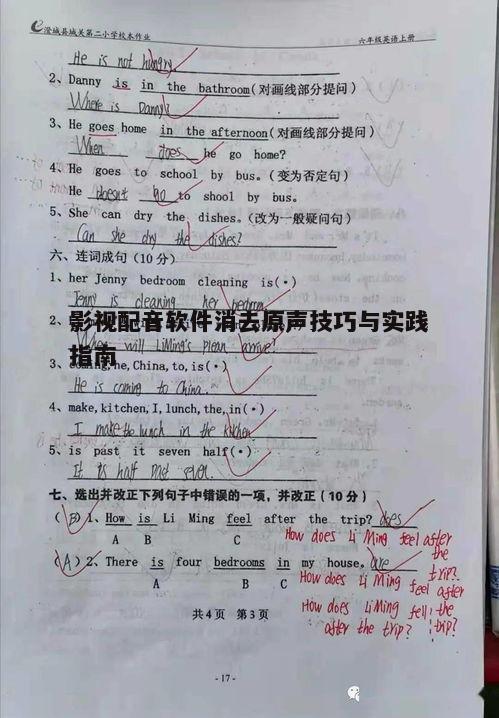 澄城县城关第二小学校本作业 六年级英语上册
He is not hungry
2、Danny is in the bathroom(对画线部分提问)
Where is Danny?
3、He goes home in the afternoon(对画线部分提问)
When does he go home?
4、He goes to school by bus.(变为否定句)
He doesn't go to shool by bus.
5、She can dry the dishes.(改为一般疑问句)
Can she dry the dishes?
六、连词成句(10分)
1、her Jenny bedroom cleaning is(.)
Jenny is cleaning her bedroom.
影视配音软件消去原声技巧与实践
指南
2、
When will LiMing's plean arrive?
3、coming,he,China,to,is(.)
He is coming to China.
4、make,kitchen,I,lunch,the,in(.)
I make the lunch in the kitchen
5、is past it seven half(.)
It is half past seven.
七、选出并改正下列句子中错误的一项，并改正(10分)
(B)1、How is Li Ming feel after the trip? does
A B C
How does Li Ming feel after
the
trip?
(A)2、There is four bedrooms in my house. are
A B C
How does Li Ming feel after
How does LiMing fell the
after the trip? trip?
共4页 第3页
-17-